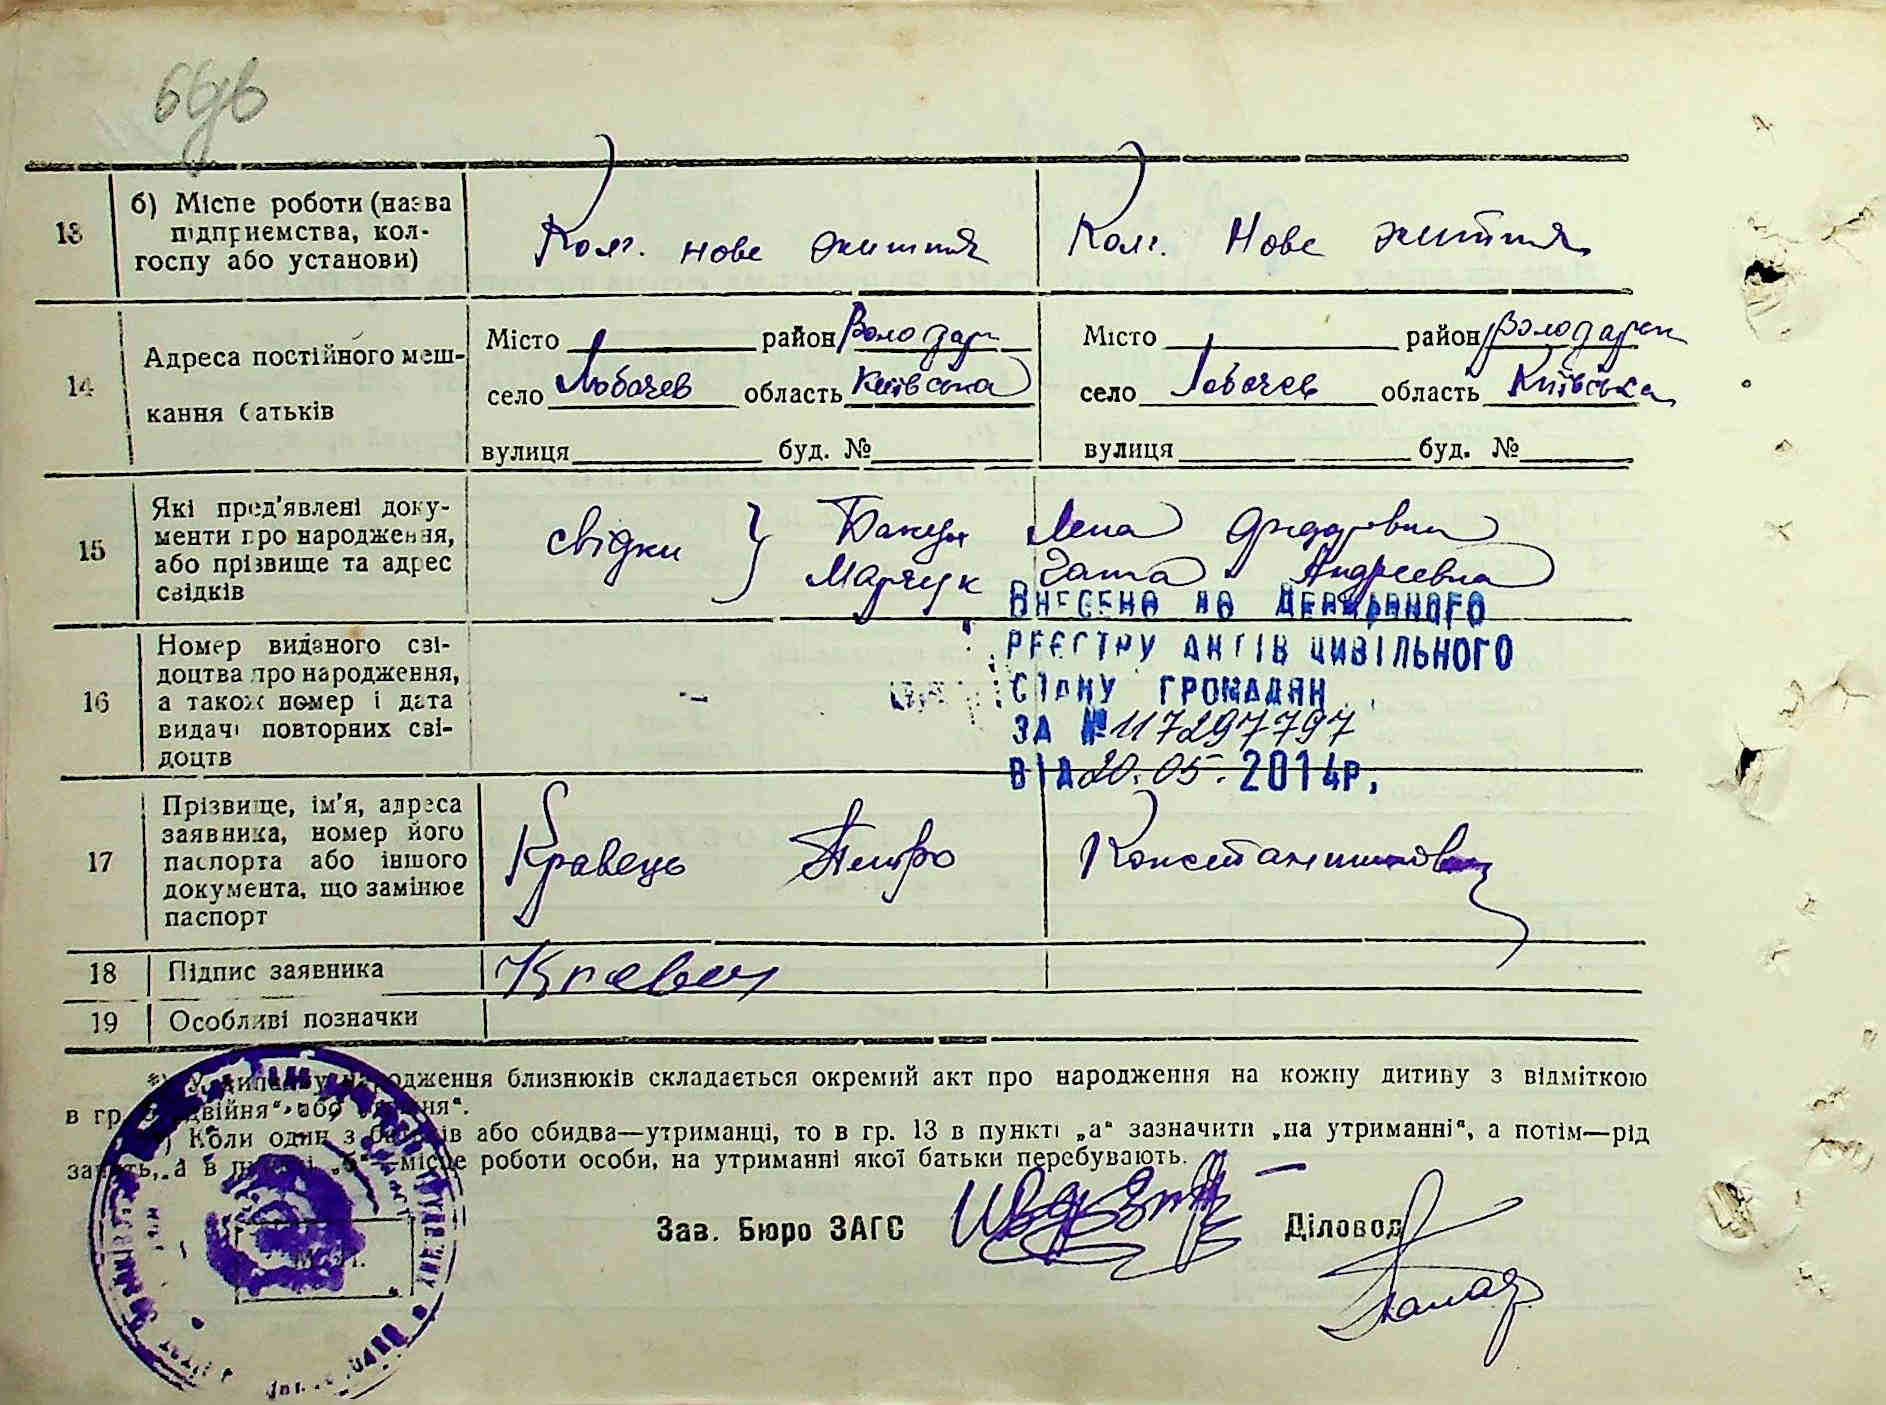 13
б) Місце роботи (назва
підприємства, кол-
госпу або установи)
Колг. нове життя
Колг. Нове життя
14
Адреса постійного меш-
кання батьків
Місто район Володарс
село Лобачев область Київська
вулиця буд. №
Місто район Володарск
село Лобачев область Київська
вулиця буд. №
15
Які пред'явлені доку-
менти про народження,
або прізвище та адрес
свідків
свідки } Лена
Марчук Андреевна
16
Номер виданого сві-
доцтва про народження,
а також номер і дата
видачі повторних сві-
доцтв
-
ВНЕСЕНО ДО ДЕРЖАВНОГО
РЕЄСТРУ АКТІВ ЦИВІЛЬНОГО
СТАНУ ГРОМАДЯН
ЗА № 117297797
ВІД 20.05.2014р.
17
Прізвище, ім'я, адреса
заявника, номер його
паспорта або іншого
документа, що замінює
паспорт
Кравець Петро Константинович
18
Підпис заявника
Кравец
19
Особливі позначки
*) У випадку народження близнюків складається окремий акт про народження на кожну дитину з відміткою
в гр. „двійня“, або „трійня“.
Коли один з батьків або обидва—утриманці, то в гр. 13 в пункті „а“ зазначити „на утриманні“, а потім—рід
занять, а в пункті „б“—місце роботи особи, на утриманні якої батьки перебувають.
Зав. Бюро ЗАГС
Діловод
М. П.